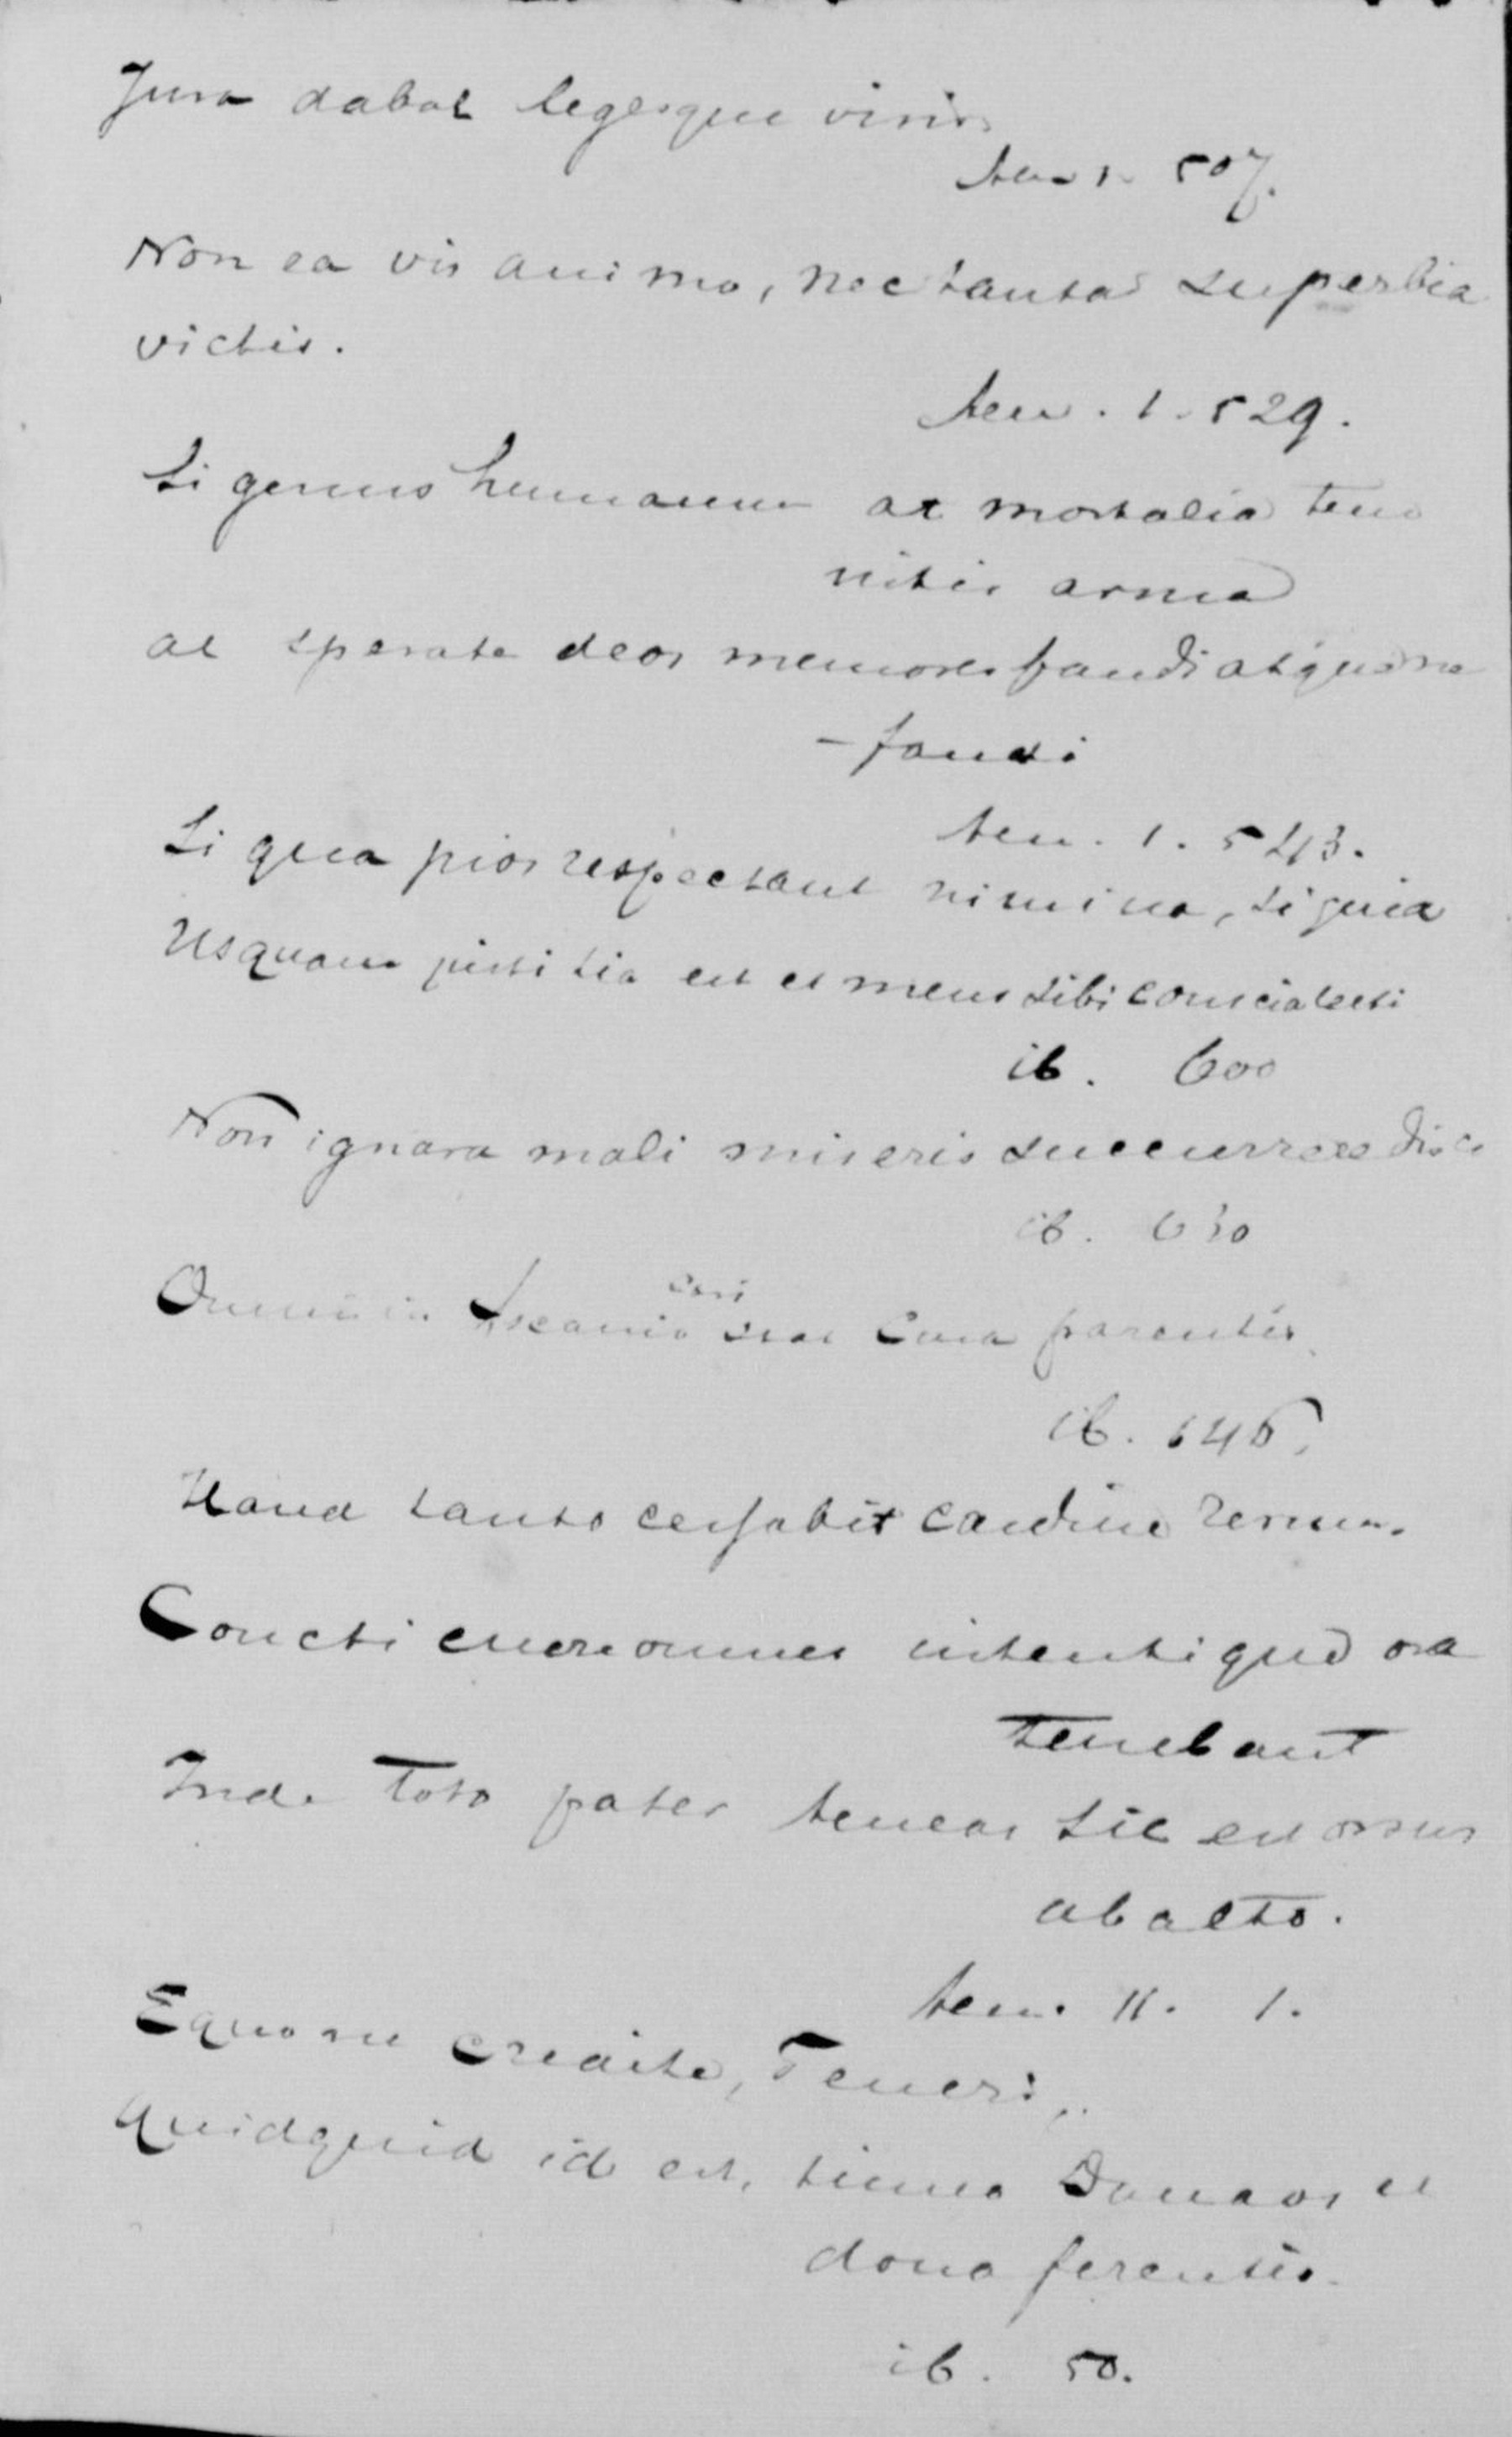 Jura dabat legesque viris
Aen 1. 507.
Non ea vis animo, nec tanta superbia
victis.
Aen. 1. 529.
Si genus humanum at mortalia tem
nitis arma
at sperate deos memores fandi atque ne
-fandi
Aen. 1. 543.
Si qua pios respectant numina, si quid
Usquam justitia est et mens sibi conscia recti
ib. 600
Non ignara mali miseris succurrere disco
ib. 630
Omnis in Ascanio cari stat cura parentis.
ib. 646.
Haud tanto cessabit cardine rerum.
Concticuere omnes intentique ora
tenebant
Inde toto pater Aeneas sic est orsus
ab alto.
Aen. II. 1.
Equo ne credite, Teucri,
Quidquid id est, timeo Danaos et
dona ferentis.
ib. 50.